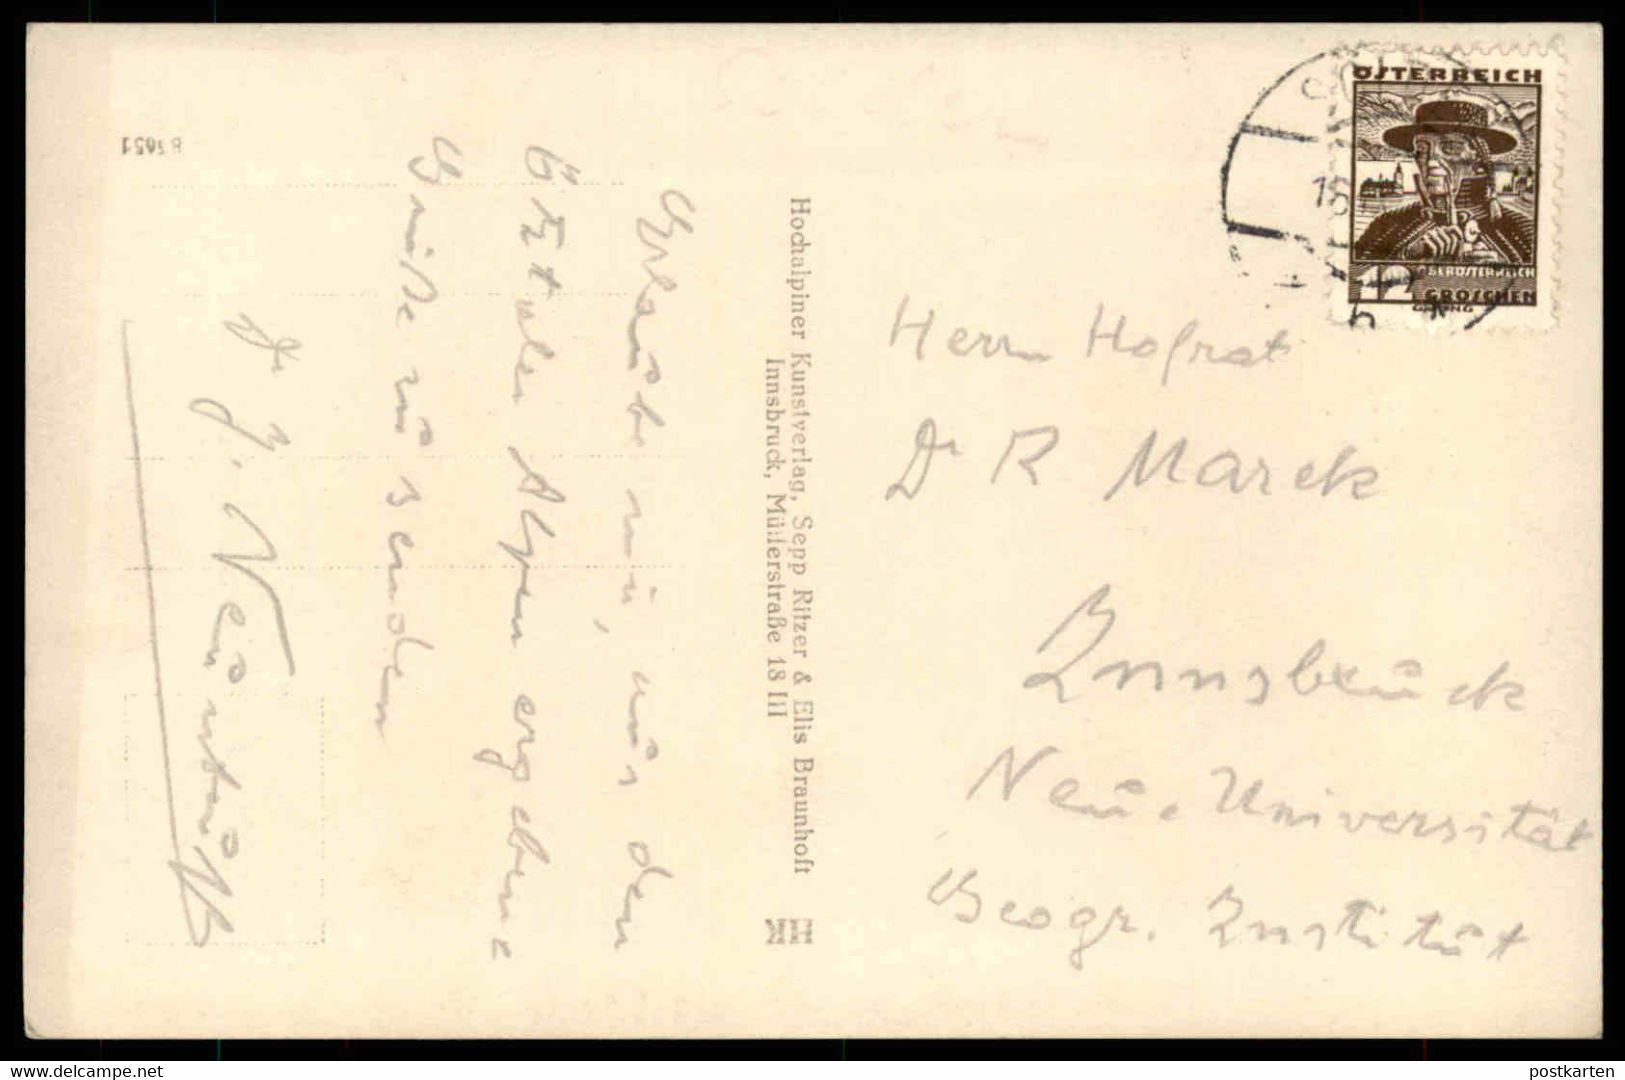 Erlaube mir, aus den
Ötztaler Alpen ergebene
Grüße zu senden
Dr J.
Hochalpiner Kunstverlag, Sepp Ritzer & Elis Braunhoft
Innsbruck, Müllerstraße 18 III
B 3651
ÖSTERREICH
OBERÖSTERREICH
12 GROSCHEN
Herrn Hofrat
Dr R Marek
Innsbruck
Neue Universität
Geogr. Institut
www.delcampe.net
postkarten